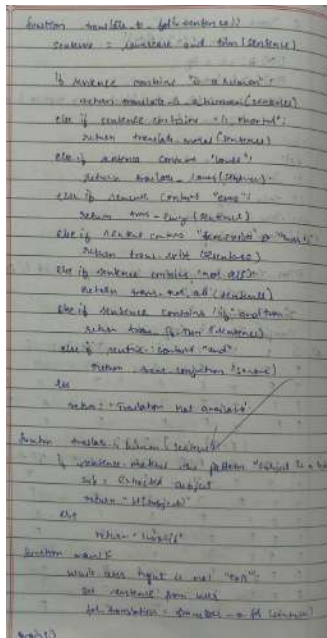 function translate_to_fol(sentence):
sentence = lowercase and trim (sentence)
if sentence contains "is a human":
return translate_is_a human (sentence)
else if sentence contains "is mortal":
return translate_mortal (sentence)
else if sentence contains "loves":
return translate_loves (sentence)
else if sentence contains
return trans_ (sentence)
else if sentence contains "there exists" or
return trans_exist (sentence)
else if sentence contains "not all":
return trans_not_all (sentence)
else if sentence contains "if" and then
return trans_if_then (sentence)
else if sentence contains "and"
return trans_conjunction (sentence)
else
return "Translation not available"
function translate_is_human (sentence)
if sentence matches the pattern "subject is a
sub = extracted subject
return "H(subject)"
else
return "invalid"
function main():
while user input is not "exit":
get sentence from user
fol_translation = translate_to_fol (sentence)
main()